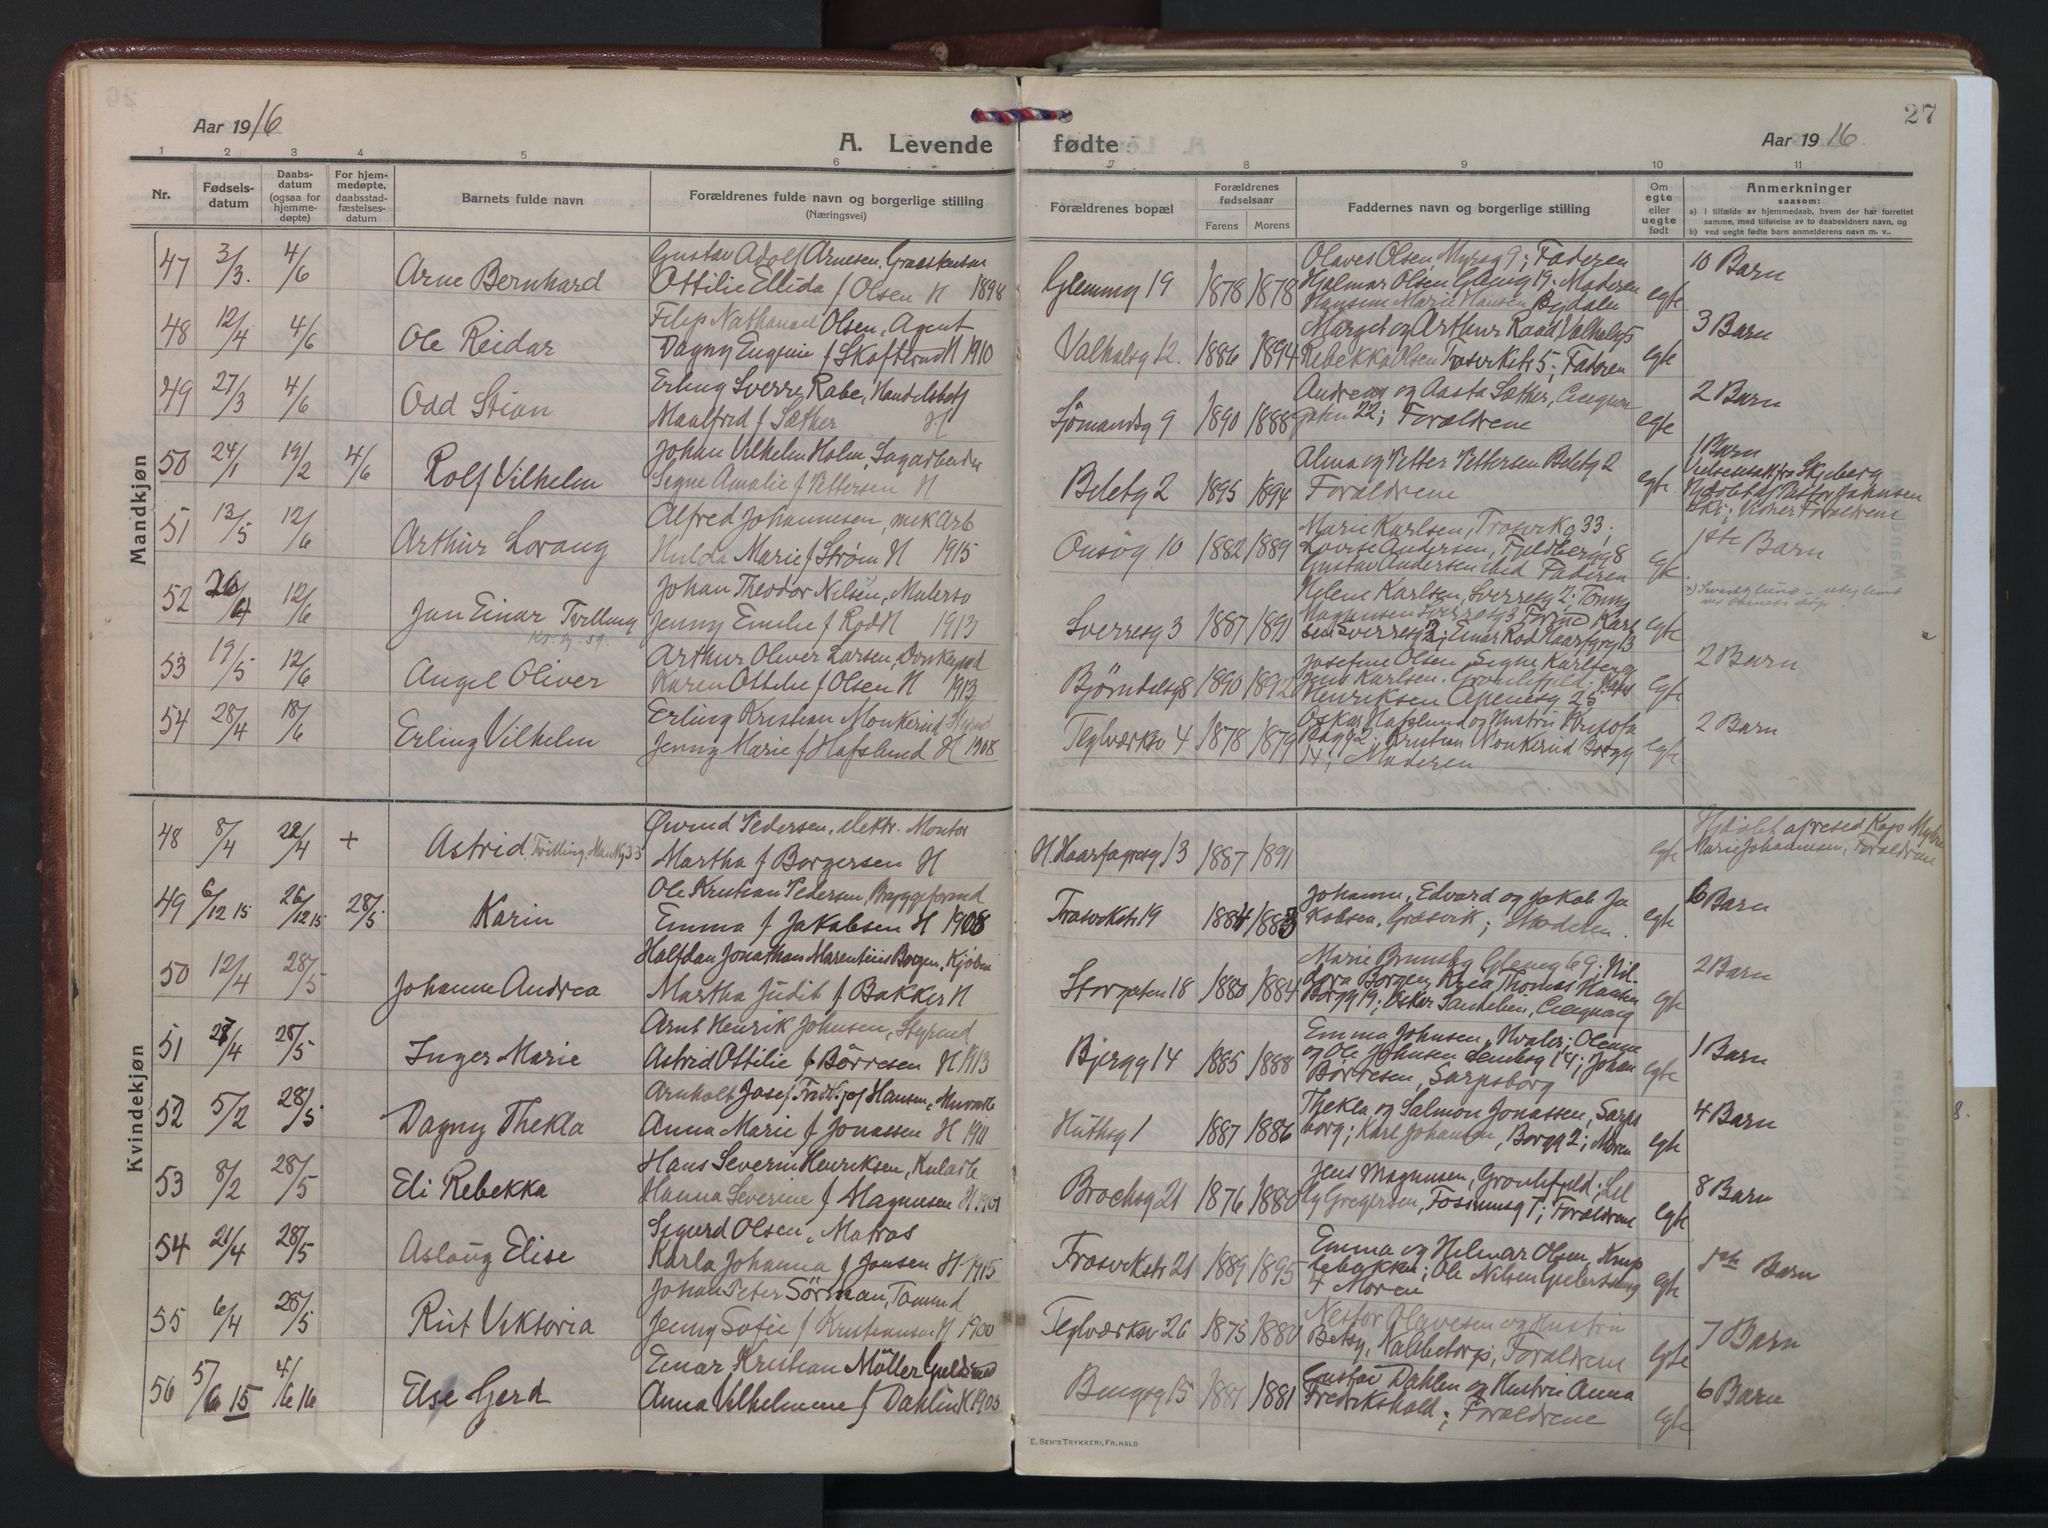 27
Aar 1916
A. Levende fødte
Aar 1916.
1 2 3 4 5 6 7 8 9 10 11
Nr.
Fødsels-
datum
Daabs-
datum
(ogsaa for
hjemme-
døpte)
For hjem-
medøpte,
daabsstad-
fæstelses-
datum
Barnets fulde navn
Forældrenes fulde navn og borgerlige stilling
(Næringsvei)
Forældrenes bopæl
Forældrenes
fødselsaar
Farens Morens
Faddernes navn og borgerlige stilling
Om
egte
eller
uegte
født
Anmerkninger
saasom:
a) i tilfælde av hjemmedaab, hvem der har forrettet
samme, med tilføielse av to daabsvidners navn, og
b) ved uegte fødte barn anmelderens navn m. v..
Mandkjøn
47 3/3. 4/6 Arne Bernhard
Gustav Adolf Arnesen,
Ottilie Ellida f Olsen H 1898
Glemmg 19 1878 1878
Olaves Olsen Myrsg 9; Faderen
Hjalmar Olsen Glemg 19; Moderen
Hansine Marie Hansen Bydalen
egte 10 Barn
48 12/4 4/6 Ole Reidar
Filip Nathanael Olsen, Agent
Dagny Eugenie f Skofterud H 1910
Valhalsg 12. 1886 1894
Margit og Arthur Raad, Valhalsg 5
Rebekka Olsen Trosvikstr 5; Faderen
egte 3 Barn
49 27/3 4/6 Odd Stian
Erling Sverre Rabe, Handelsbetj
Maalfred f Sæther H
Sjømandsg 9 1890 1888
Andreas og Aasta Sæther,
gaten 22; Forældrene
egte 2 Barn
50 24/1 19/2 4/6 Rolf Vilhelm
Johan Vilhelm Holm, Sagarbeider
Signe Amalie f Pettersen H
Beletg 2 1895 1894
Alma og Petter Pettersen Beletg 2
Forældrene
egte 1 Barn
Vielsesatt fra Skjeberg
Hjdøbt af Pastor Johnsen
Forældrene
51 13/5 12/6 Arthur Lorang
Alfred Johannesen, mek Arb
Hulda Marie f Strøm H 1915
Onsøg 10 1882 1889
Marie Karlsen, Trosvikg 33;
Lovise Andersen, Fjeldbergg 8
Gustav Andersen ibid Faderen
egte 1ste Barn
52 26/4 12/6 Jan Einar Tvilling
Johan Theodor Nilsen, Malersv
Jenny Emilie f Rød H 1913
Sverresg 3 1887 1891
Helene Karlsen, Sverresg 2; Tonny
Magnusen Sverresg 3
Sverresg 2; Einar Rød Haarfagrg 13
egte
53 19/5 12/6 Angel Oliver
Arthur Oliver Larsen,
Karen Ottilie f Olsen H 1913
Bjørndalsg 8 1890 1892
Josefine Olsen, Signe Karlsen og
Jens Karlsen,
Henriksen Apenesg 25
egte 2 Barn
54 28/4 18/6 Erling Vilhelm
Erling Kristian Monkerud Styrmd
Jenny Marie f Hafslund H 1908
Teglværksv 4 1878 1879
Oskar Hafslund og Hustru Kristofa
Kristian Monkerud Borgg
14; Moderen
egte 2 Barn
Kvindekjøn
48 8/4 22/4 + Astrid, Tvilling, Mank 33
Øivind Pedersen, elektr. Montør
Martha f Borgersen H
H. Haarfagresg 13 1887 1891
egte
Marie Johannesen, Forældrene
49 6/12 15 26/12 15 28/5 Karin
Ole Kristian Pedersen, Bryggeformd
Emma f Jakobsen H 1908
Trosvikstr 19 1884 1883
Johanne, Edvard og Jakob Ja
kobsen, Gresvik; Moderen.
egte 6 Barn
50 12/4 28/5 Johanne Andrea
Halfdan Jonathan Marentius Borgen, Kjøbm
Martha Judit f Bakker H
Storgaten 18 1880 1884
Marie Brunsby Glemg 69; Hil
dora Borgen, Thomas Hansen
Borgg 19; Oskar Sandelien,
egte 2 Barn
51 28/4 28/5 Inger Marie
Arnt Henrik Johnsen, Styrmd
Astrid Ottilie f Börresen H 1913
Bjergg 14 1885 1888
Emma Johnsen, Hvaler; Oleane
og Ole Johnsen 14; Johan
Börresen, Sarpsborg
egte 1 Barn
52 5/2 28/5 Dagny Thekla
Arnholt Josef Fridtjof Hansen,
Anna Marie f Jonassen H 1911
Huthsg 1 1887 1886
Thekla og Salmon Jonassen, Sarps
borg; Karl Johansen, Borgg 2; Moren
egte 4 Barn
53 8/2 28/5 Eli Rebekka
Hans Severin Henriksen, Kularb
Hanna Severine f Magnusen H 1901
Brochsg 21 1876 1880
Jens Magnusen,
Gregersen, Fossumsg 1; Forældrene
egte 8 Barn
54 21/4 28/5 Aslaug Elise
Sigurd Olsen, Matros
Karla Johanna f Jansen H 1915
Trosvikstr 21 1889 1895
Emma og Hilmar Olsen,
Ole Nilsen
4 Moren
egte 1ste Barn
55 6/4 28/5 Rut Viktoria
Johan Peter Sörman, Tømmd
Jenny Sofie f Kristiansen H 1900
Teglværksv 26 1875 1880
Nestor Olavesen og Hustru
Betsy, Nabbetorp, Forældrene
egte 7 Barn
56 5/6 15 4/6 16 Else Gjerd
Einar Kristian Möller Guldsmed
Anna Vilhelmine f Dahlin H 1903
15 1881 1881
Gustav Dahlen og Hustru Anna
Fredrikshald; Forældrene
egte 6 Barn
E. SEM'S TRYKKERI, FR.HALD